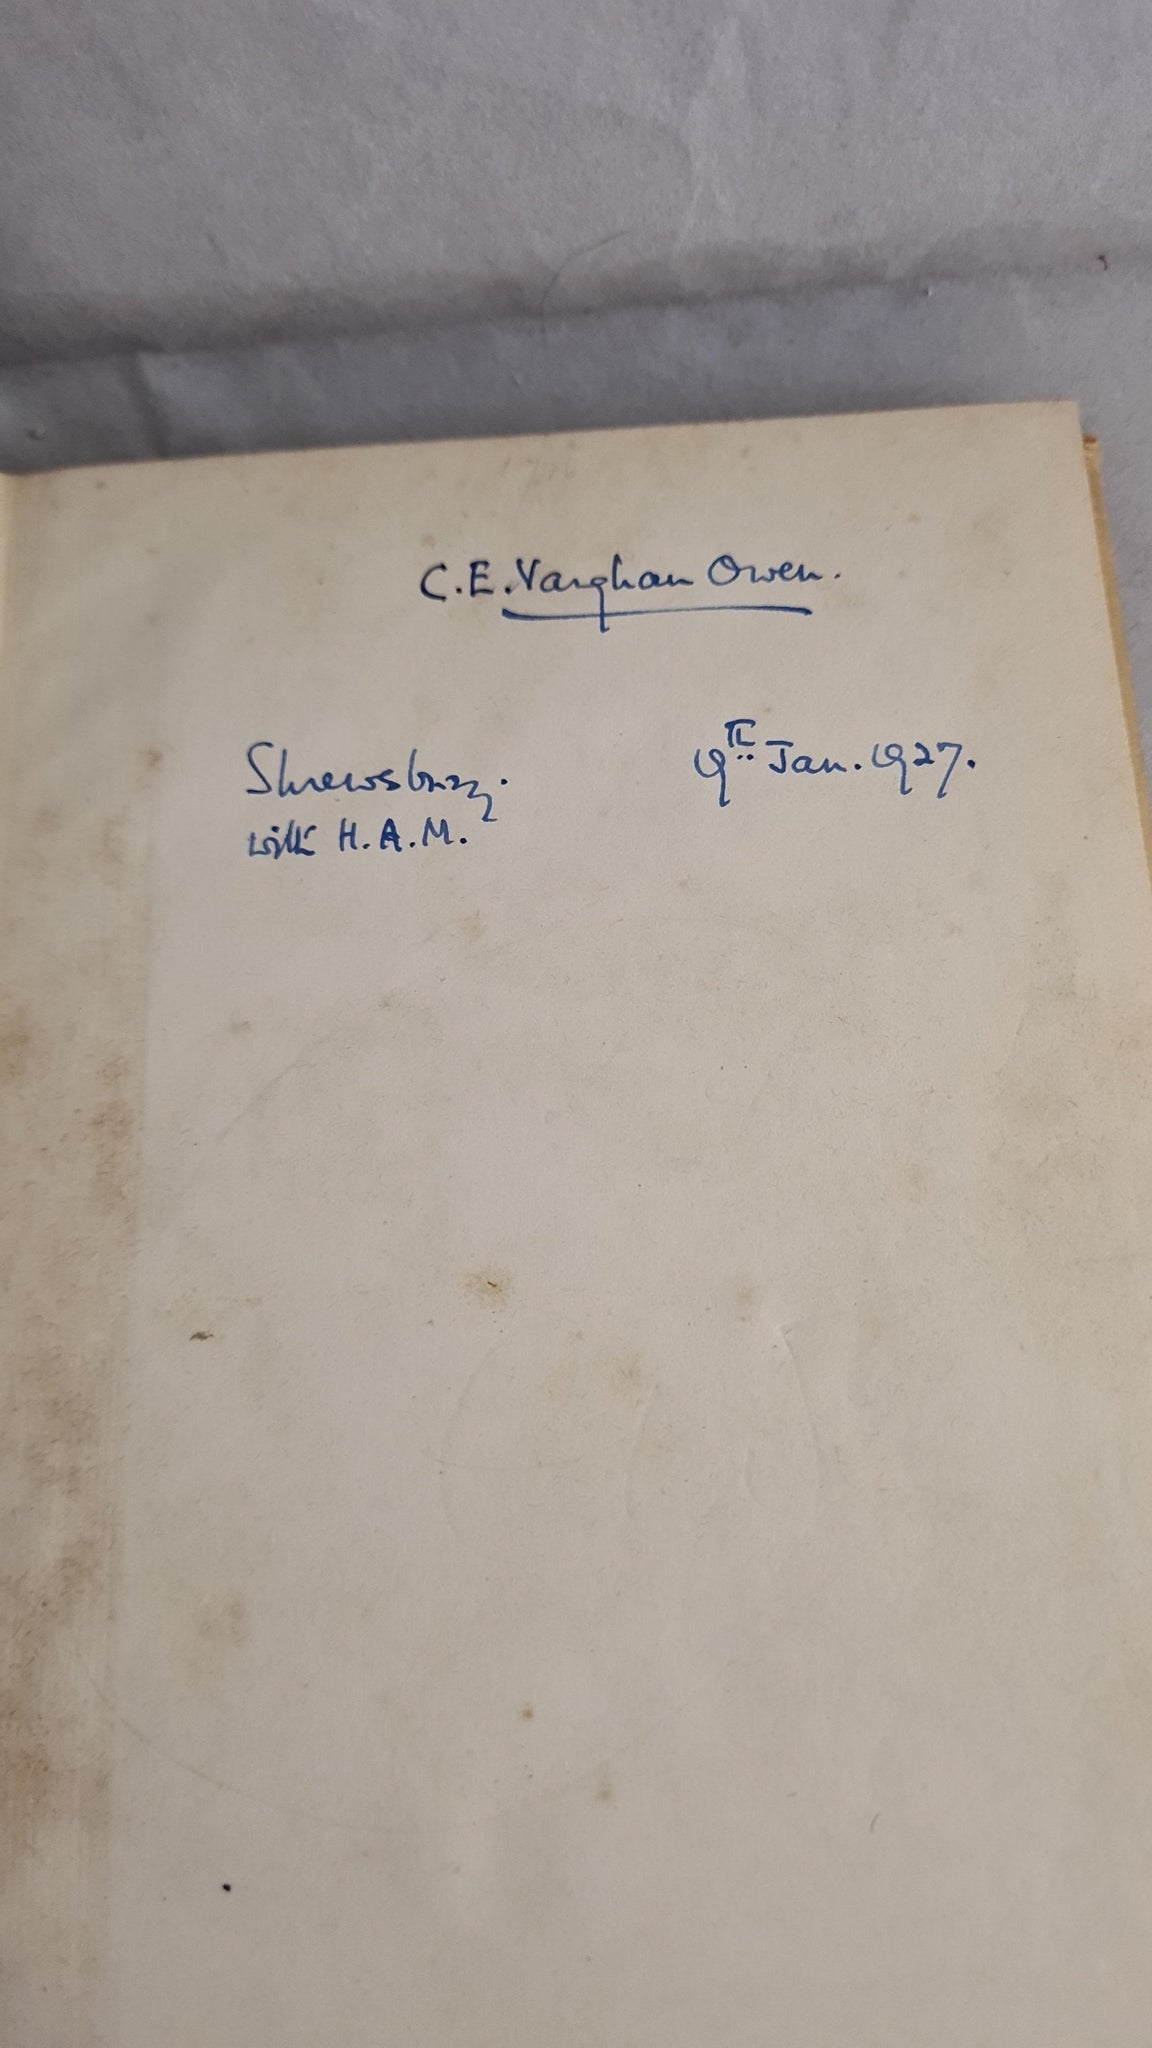 C.E. Vaughan Owen.
Shrewsbury. 9th Jan. 1927.
with H.A.M.